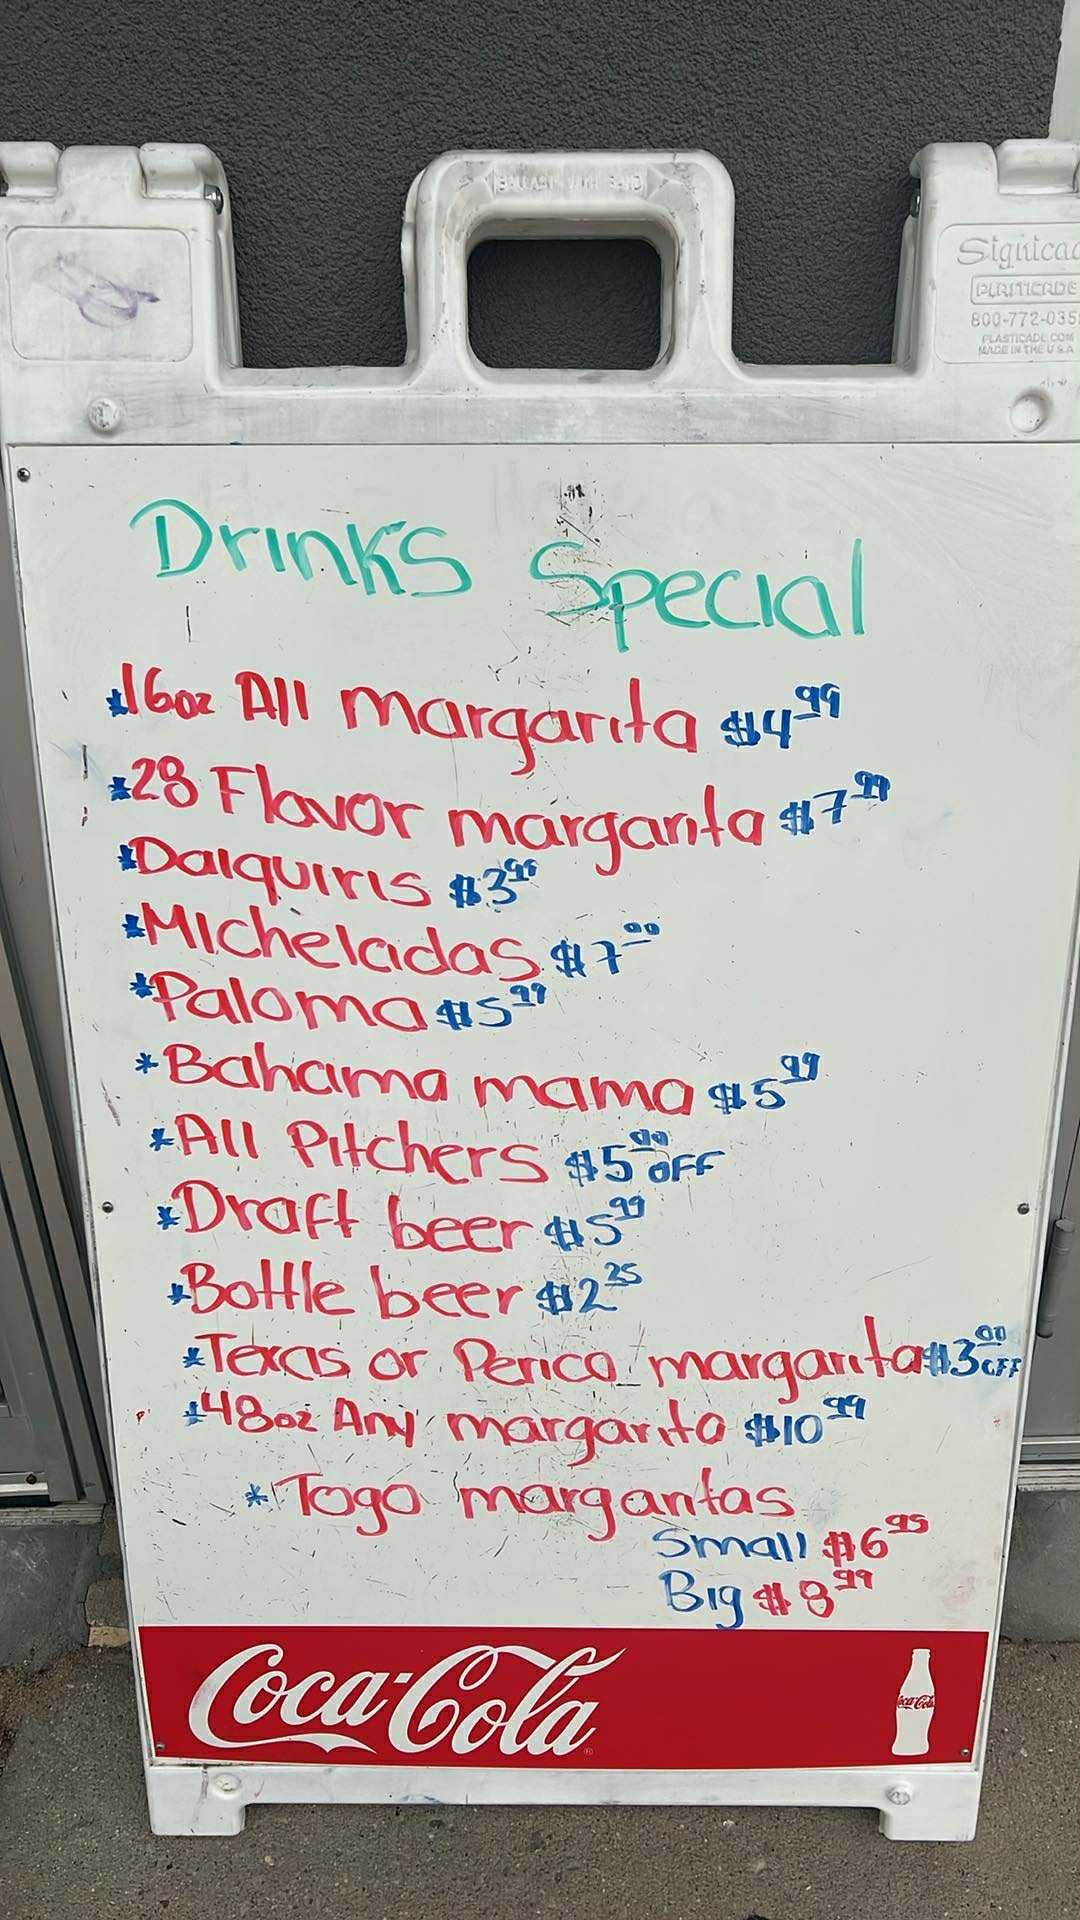 BALLAST WITH SAND
Signicade
PLASTICADE
800-772-035
PLASTICADE.COM
MADE IN THE U S A
Drinks Special
*16oz All margarita $4.99
*28 Flavor margarita $7.99
*Daiquiris $3.99
*Micheladas $7.00
*Paloma $5.99
*Bahama mama $5.99
*All Pitchers $5.00 OFF
*Draft beer $5.99
*Bottle beer $2.25
*Texas or Perico margarita $3.00 OFF
*48oz Any margarita $10.99
*Togo margaritas
Small $6.95
Big $8.99
Coca-Cola
Coca-Cola